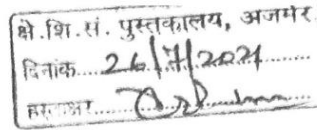 क्षे.शि.सं. पुस्तकालय, अजमेर
दिनांक....26/7/2021....
हस्ताक्षर